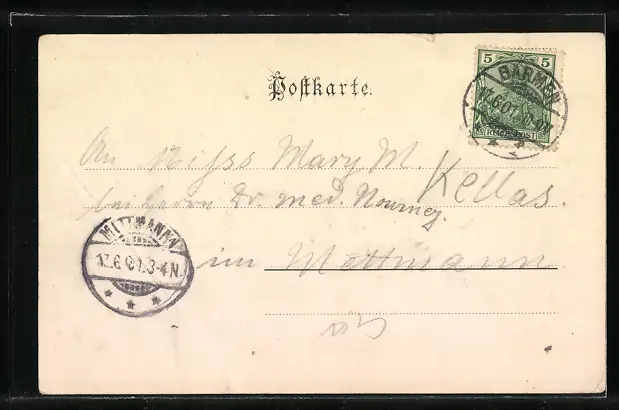 Postkarte.
5 5
REICHSPOST
BARMEN
17.6.01
An Miss Mary M. Kellas.
bei Herrn Dr. med. Nourney.
im Mettmann
METTMANN
17.6.01.3-4N.